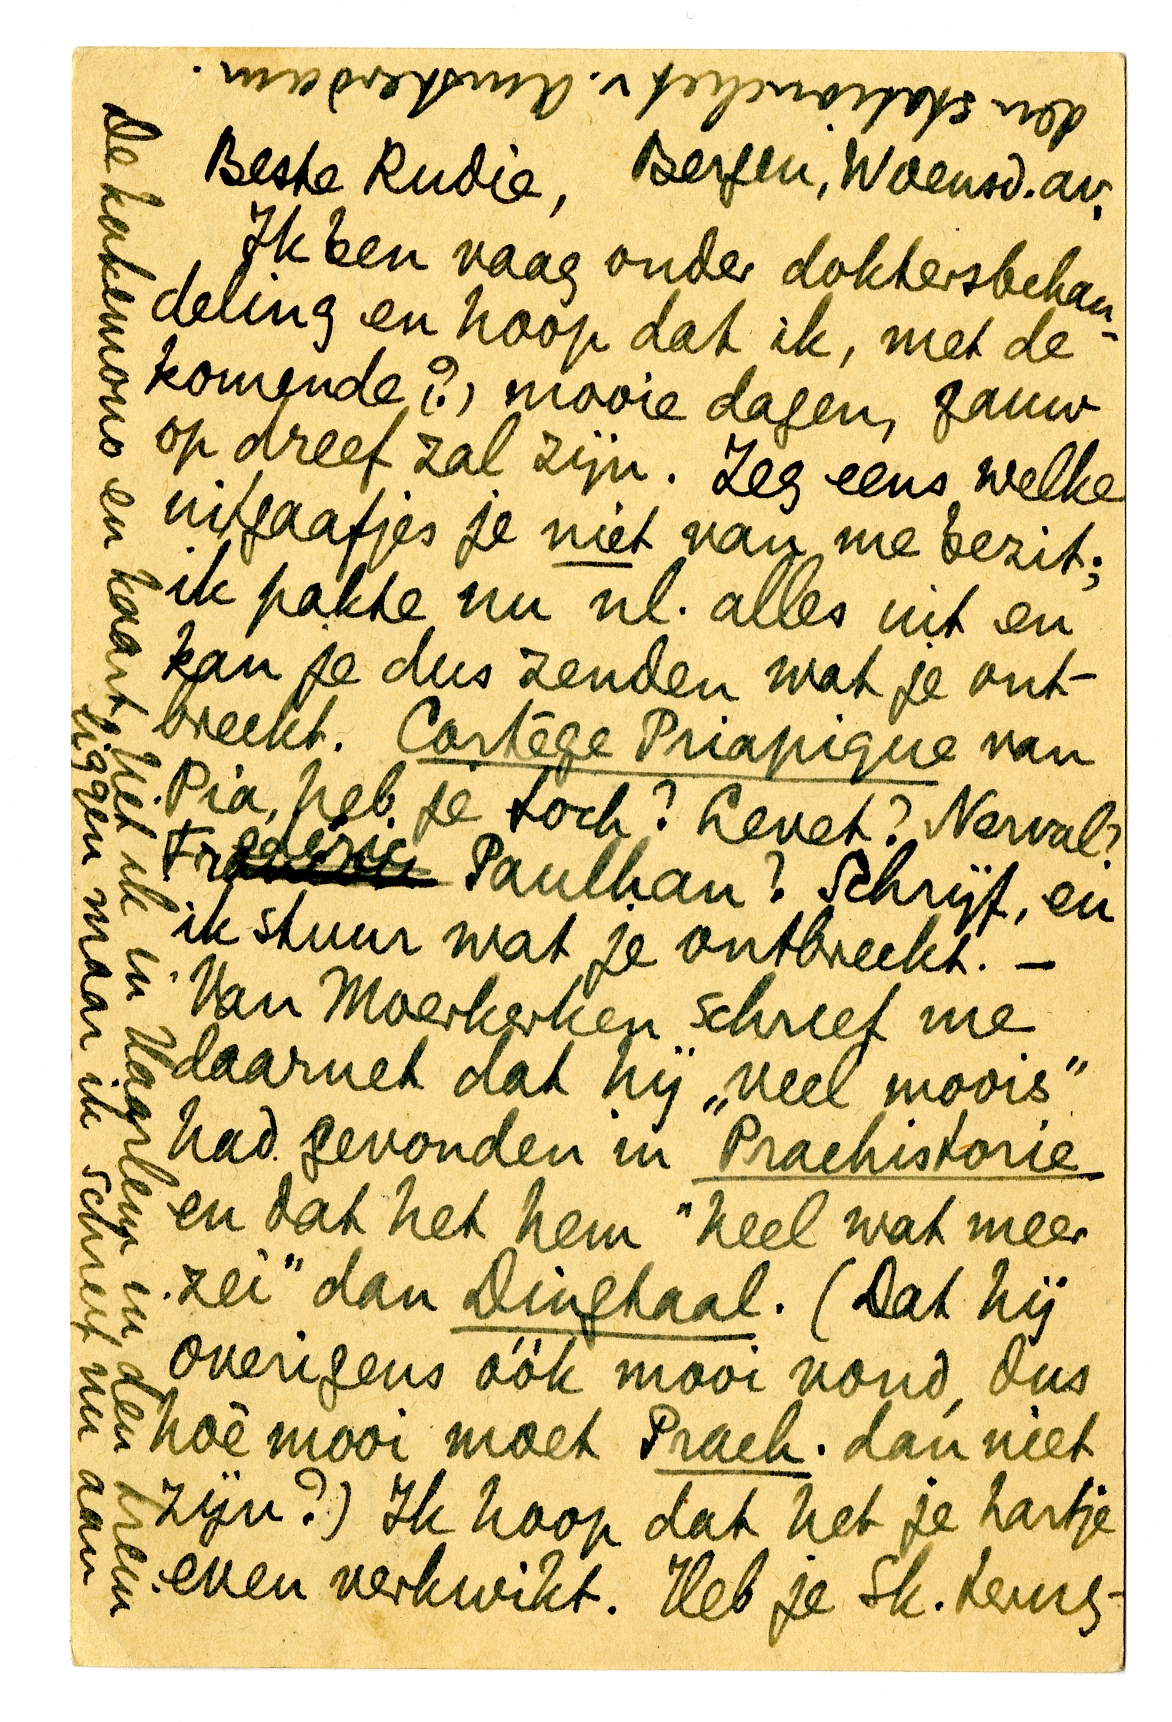 Beste Rudie, Bergen, Woensd. av.
Ik ben vaag onder doktersbehan-
deling en hoop dat ik, met de
komende (?) mooie dagen, gauw
op dreef zal zijn. Zeg eens welke
uitgaafjes je niet van me bezit;
ik pakte nu nl. alles uit en
kan je dus zenden wat je ont-
breekt. Cortège Priapique van
Pia, heb je toch? Levet? Nerval?
Frederic Paulhan? Schrijf, en
ik stuur wat je ontbreekt. —
Van Moerkerken schreef me
daarnet dat hij „veel moois”
had gevonden in Praehistorie
en dat het hem "heel wat meer
zei" dan Dingtaal. (Dat hij
overigens óók mooi vond, dus
hoè mooi moet Praeh. dan niet
zijn?) Ik hoop dat het je hartje
even verkwikt. Heb je Sk. terug-
De kakemono en kaart het ik in Haarlem in den trein
liggen maar ik schreef nu aan
den stationchef v. Amsterdam.